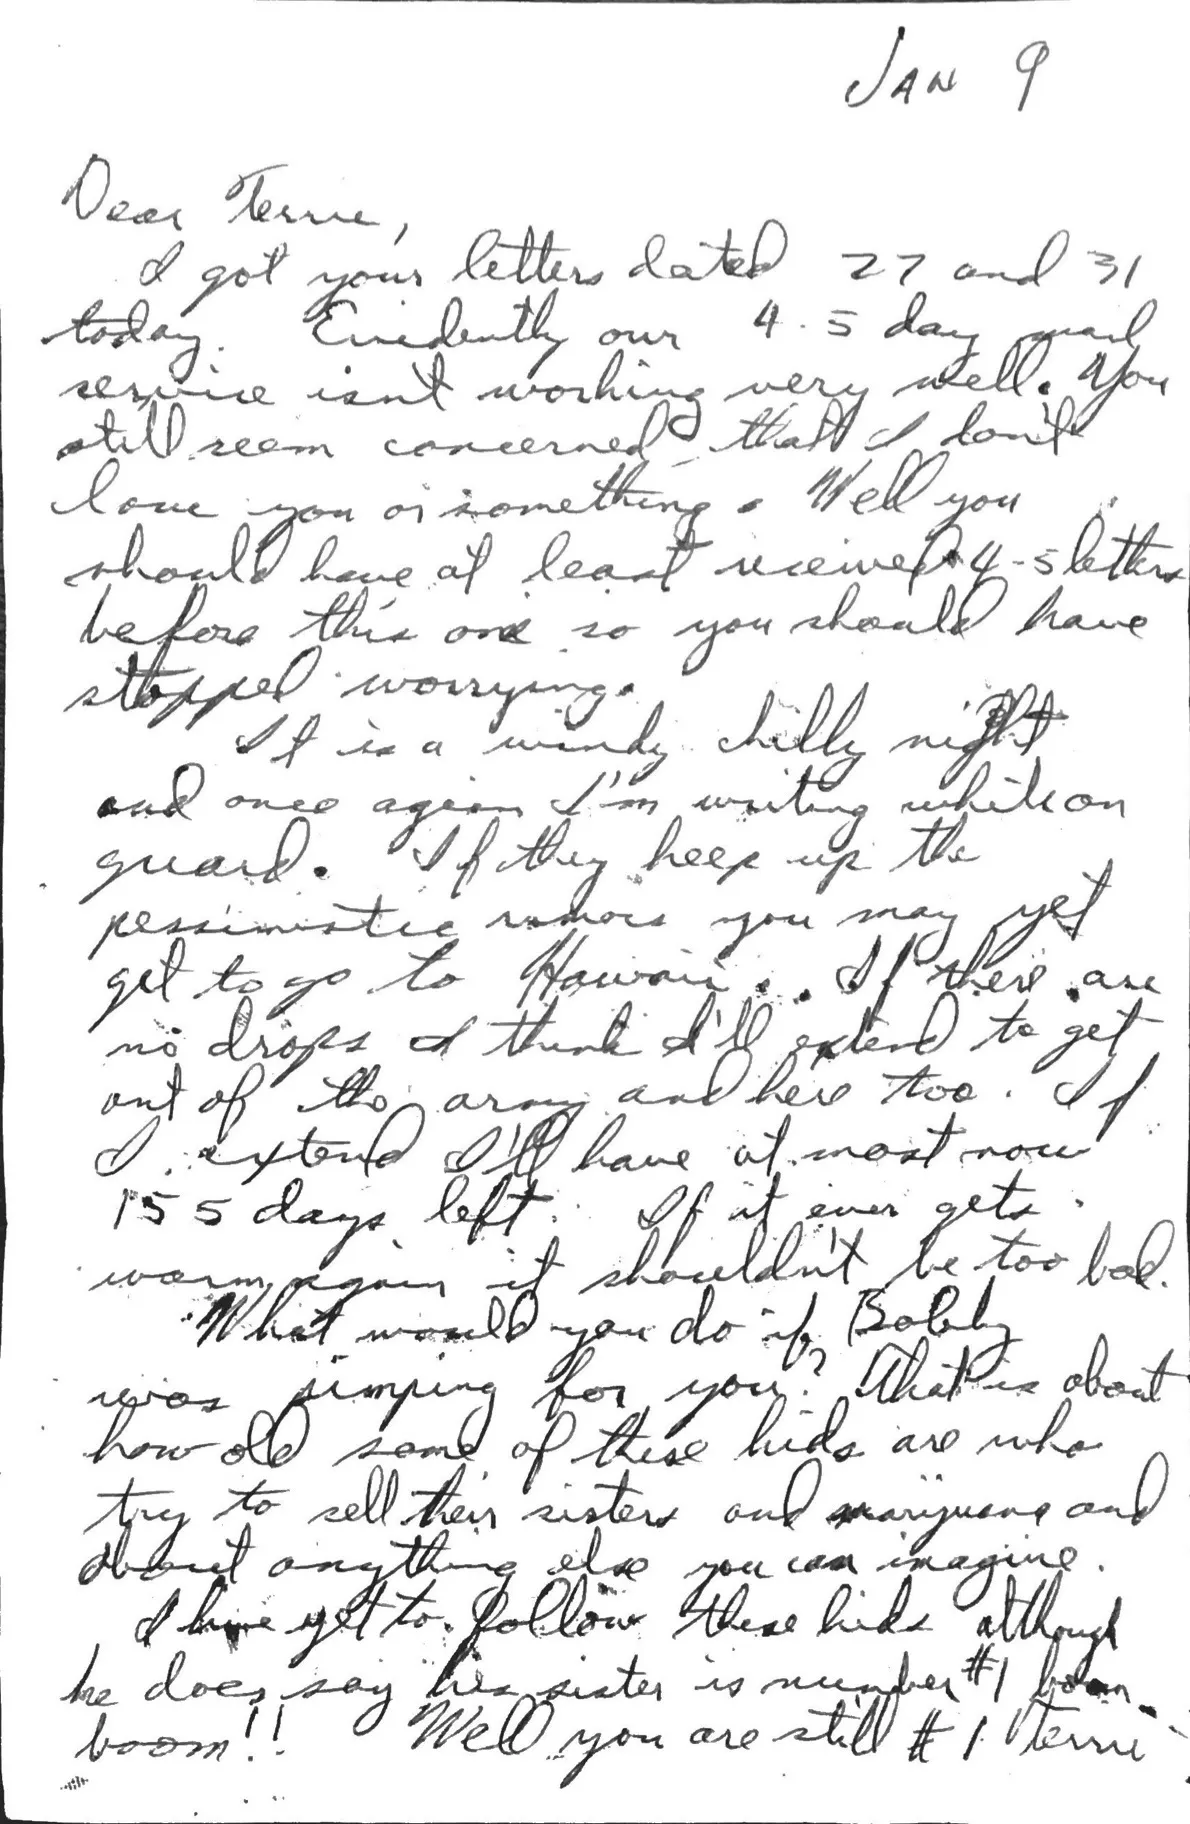 JAN 9
Dear Terrie,
I got your letters dated 27 and 31
today. Evidently our 4-5 day mail
service isn't working very well. You
still seem concerned that I don't
love you or something. Well you
should have at least received 4-5 letters
before this one so you should have
stopped worrying.
It is a windy chilly night
and once again I'm writing while on
guard. If they keep up the
pessimistic rumors you may yet
get to go to Hawaii. If there are
no drops I think I'll extend to get
out of the army and here too. If
I extend I'll have at most now
155 days left. If it ever gets
warm again it shouldn't be too bad.
What would you do if Bobby
was pimping for you? That is about
how old some of these kids are who
try to sell their sisters and marijuana and
about anything else you can imagine.
I have yet to follow these kids although
he does say his sister is number #1 boom-
boom!! Well you are still #1 Terrie